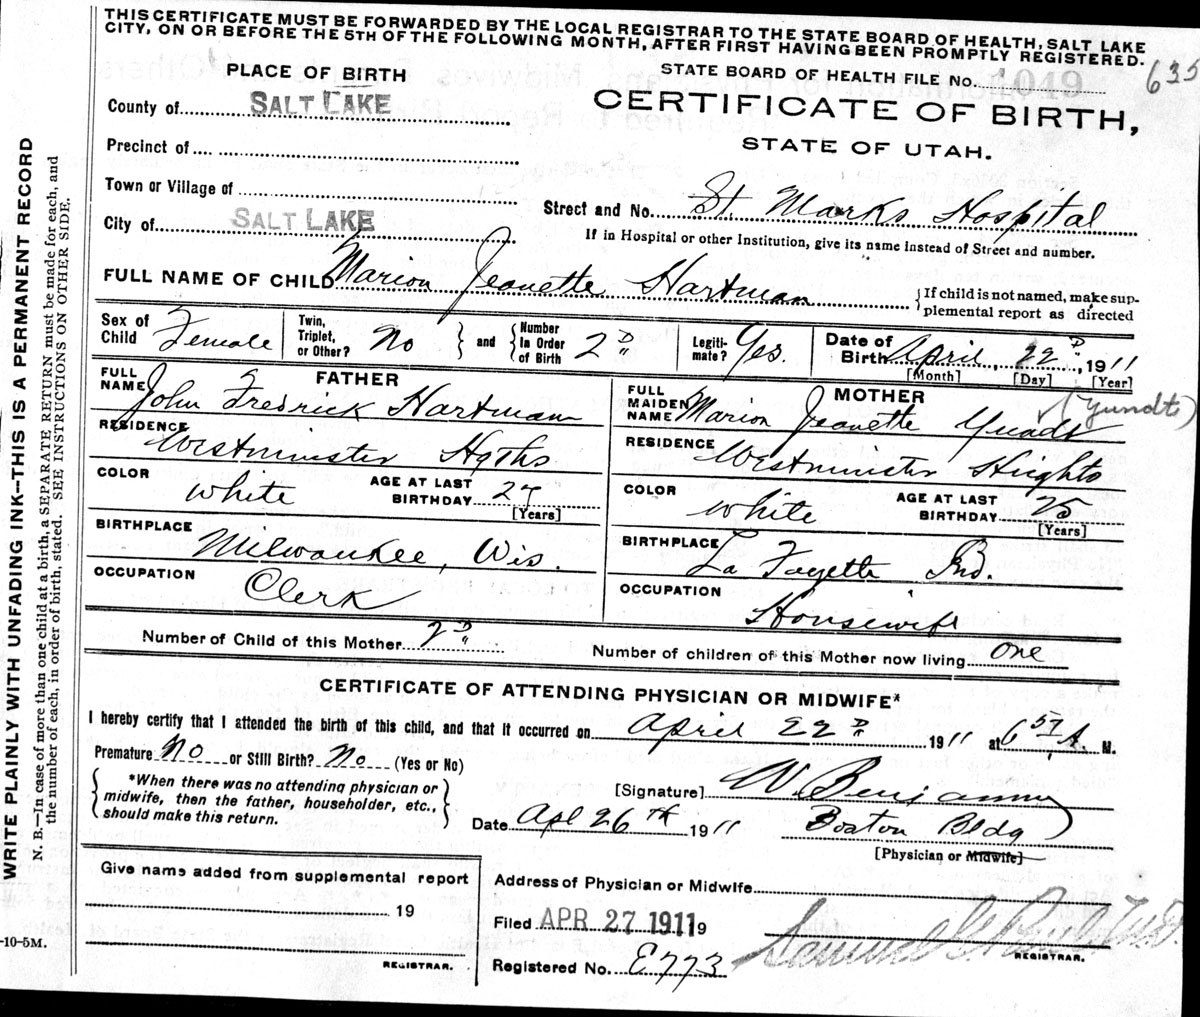 THIS CERTIFICATE MUST BE FORWARDED BY THE LOCAL REGISTRAR TO THE STATE BOARD OF HEALTH, SALT LAKE
CITY, ON OR BEFORE THE 5TH OF THE FOLLOWING MONTH, AFTER FIRST HAVING BEEN PROMPTLY REGISTERED.
635
PLACE OF BIRTH
STATE BOARD OF HEALTH FILE No. 1049
County of SALT LAKE
CERTIFICATE OF BIRTH,
STATE OF UTAH.
Precinct of
Town or Village of
Street and No. St. Marks Hospital
City of SALT LAKE
If in Hospital or other Institution, give its name instead of Street and number.
FULL NAME OF CHILD Marion Jeanette Hartman
If child is not named, make sup-
plemental report as directed
Sex of Child Female
Twin, Triplet, or Other? No
and
Number In Order of Birth 2D
Legiti-mate? Yes.
Date of Birth April 22D, 1911
[Month] [Day] [Year]
FATHER
FULL NAME John Fredrick Hartman
RESIDENCE Westminster Hgths
COLOR white
AGE AT LAST BIRTHDAY 27
[Years]
BIRTHPLACE
Milwaukee, Wis.
OCCUPATION
Clerk
MOTHER
FULL MAIDEN NAME Marion Jeanette Yundt
(Yundt)
RESIDENCE Westminster Heights
COLOR white
AGE AT LAST BIRTHDAY 25
[Years]
BIRTHPLACE
La Fayette Ind.
OCCUPATION
Housewife
Number of Child of this Mother 2D
Number of children of this Mother now living one
CERTIFICATE OF ATTENDING PHYSICIAN OR MIDWIFE*
I hereby certify that I attended the birth of this child, and that it occurred on April 22D 1911 at 6 A. M.
Premature No or Still Birth? No (Yes or No)
*When there was no attending physician or
midwife, then the father, householder, etc.,
should make this return.
[Signature] W. Benjamin
Date Apl 26th 1911
Boston Bldg
[Physician or Midwife]
Give name added from supplemental report
19
REGISTRAR.
Address of Physician or Midwife
Filed APR 27 1911 19
Samuel G. Paul
REGISTRAR.
Registered No. E773
WRITE PLAINLY WITH UNFADING INK—THIS IS A PERMANENT RECORD
N. B.—In case of more than one child at a birth, a SEPARATE RETURN must be made for each, and
the number of each, in order of birth, stated. SEE INSTRUCTIONS ON OTHER SIDE.
-10-5M.